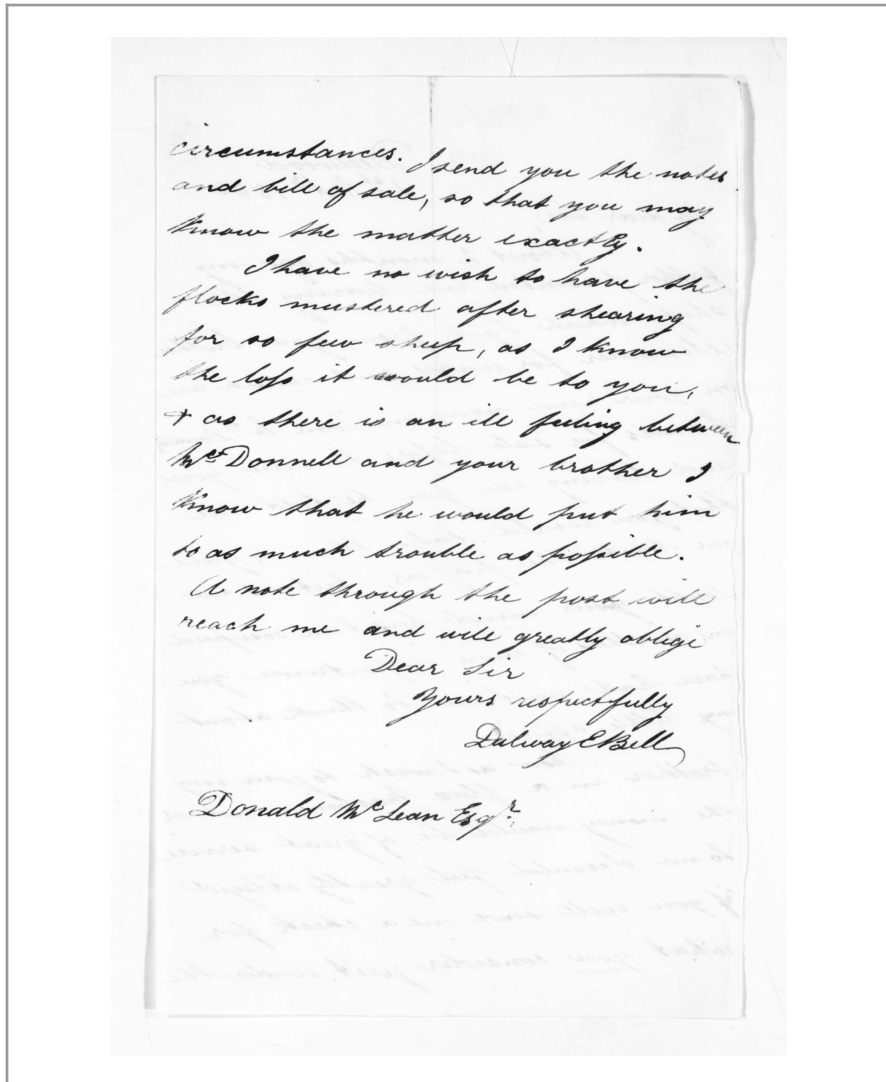 circumstances. I send you the notes
and bill of sale, so that you may
know the matter exactly.
I have no wish to have the
flocks mustered after shearing
for so few sheep, as I know
the loss it would be to you,
& as there is an ill feeling between
McDonnell and your brother I
know that he would put him
to as much trouble as possible.
A note through the post will
reach me and will greatly oblige
Dear Sir
Yours respectfully
Dalway E Bell
Donald McLean Esqr.